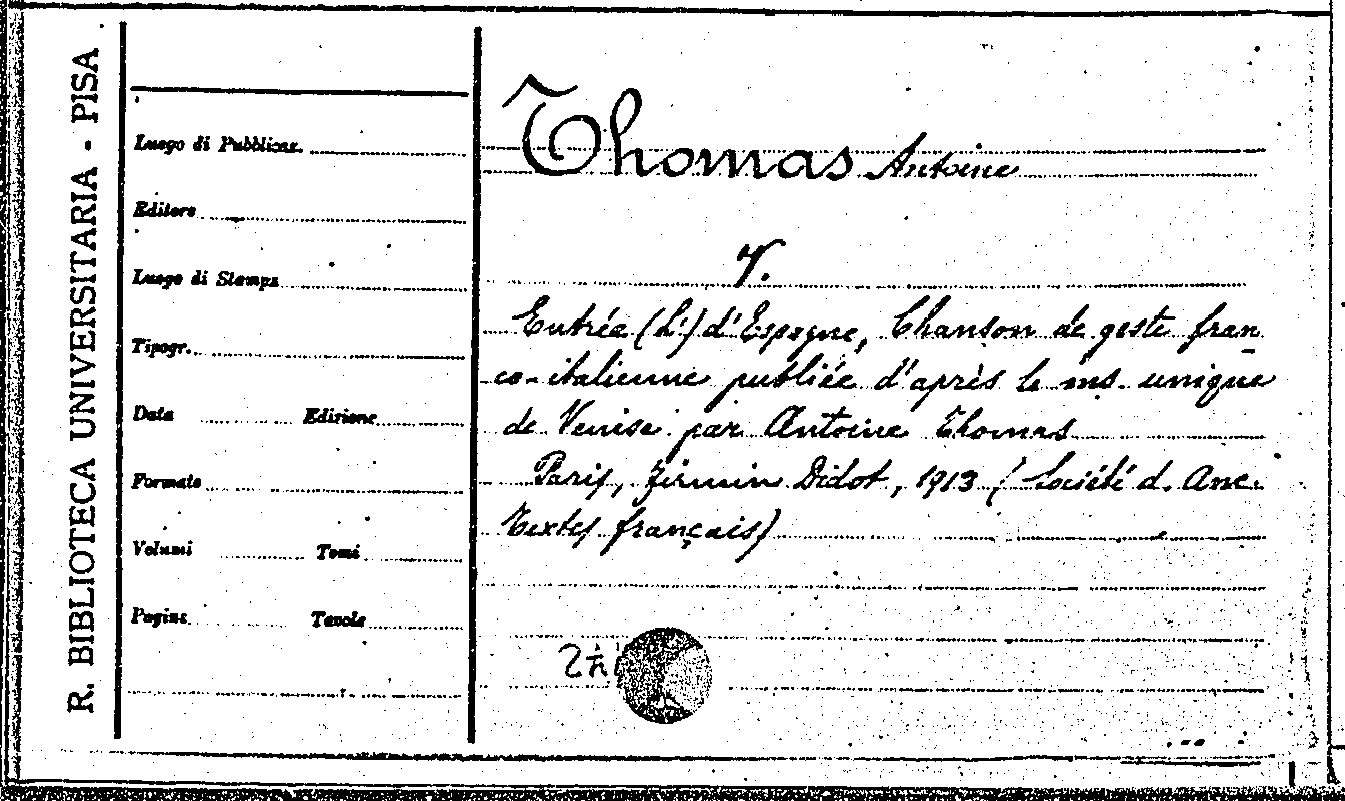 R. BIBLIOTECA UNIVERSITARIA - PISA
Luogo di Pubblicaz.
Editore
Luogo di Stampa
Tipogr.
Data Edizione
Formato
Volumi Tomi
Pagine Tavole
Thomas Antoine
V.
Entrée (L') d'Espagne, Chanson de geste fran
co-italienne publiée d'après le ms. unique
de Venise par Antoine Thomas
Paris, Firmin Didot, 1913 (Société d. Anc.
Textes français)